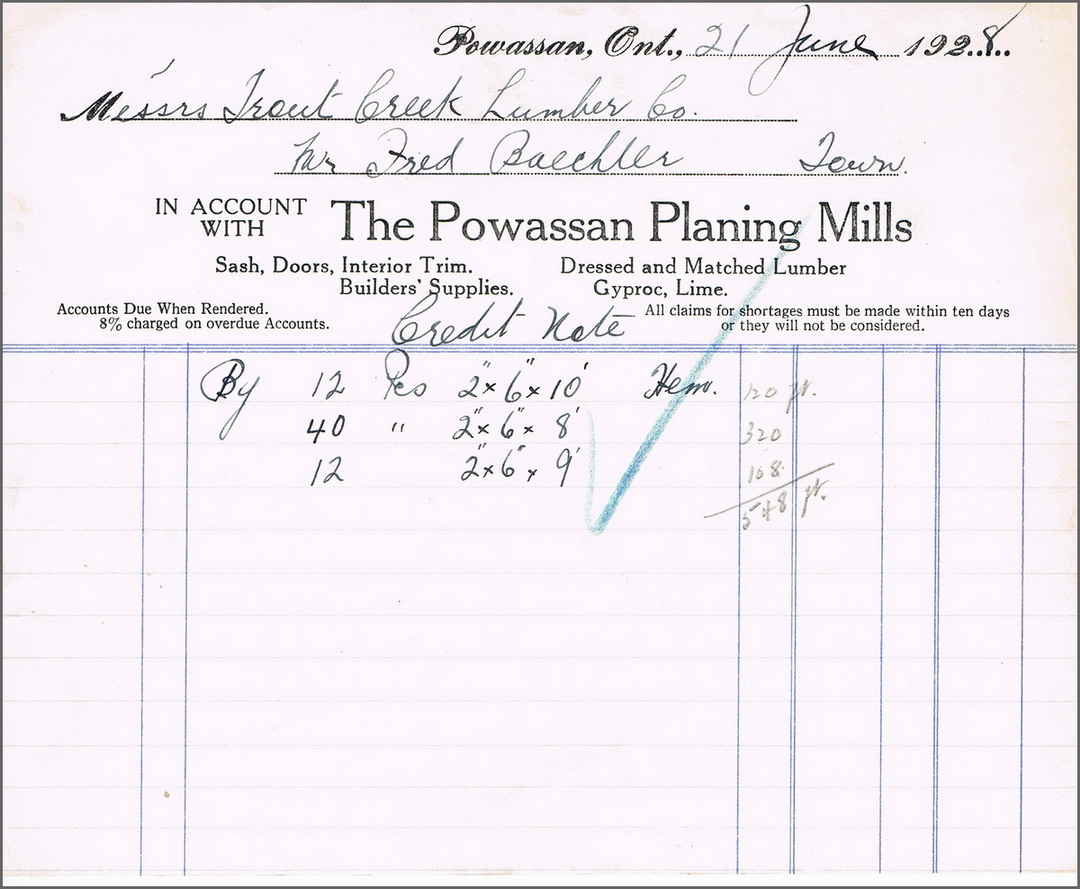 Powassan, Ont., 21 June 1928
Messrs Trout Creek Lumber Co.
Mr Fred Baechler Town.
IN ACCOUNT WITH The Powassan Planing Mills
Sash, Doors, Interior Trim. Dressed and Matched Lumber
Builders' Supplies. Gyproc, Lime.
Accounts Due When Rendered. All claims for shortages must be made within ten days
8% charged on overdue Accounts. or they will not be considered.
Credit Note
By 12 Pcs 2" x 6" x 10' Hem. 120 ft.
40 " 2" x 6" x 8' 320
12 2" x 6" x 9' 108
548 ft.